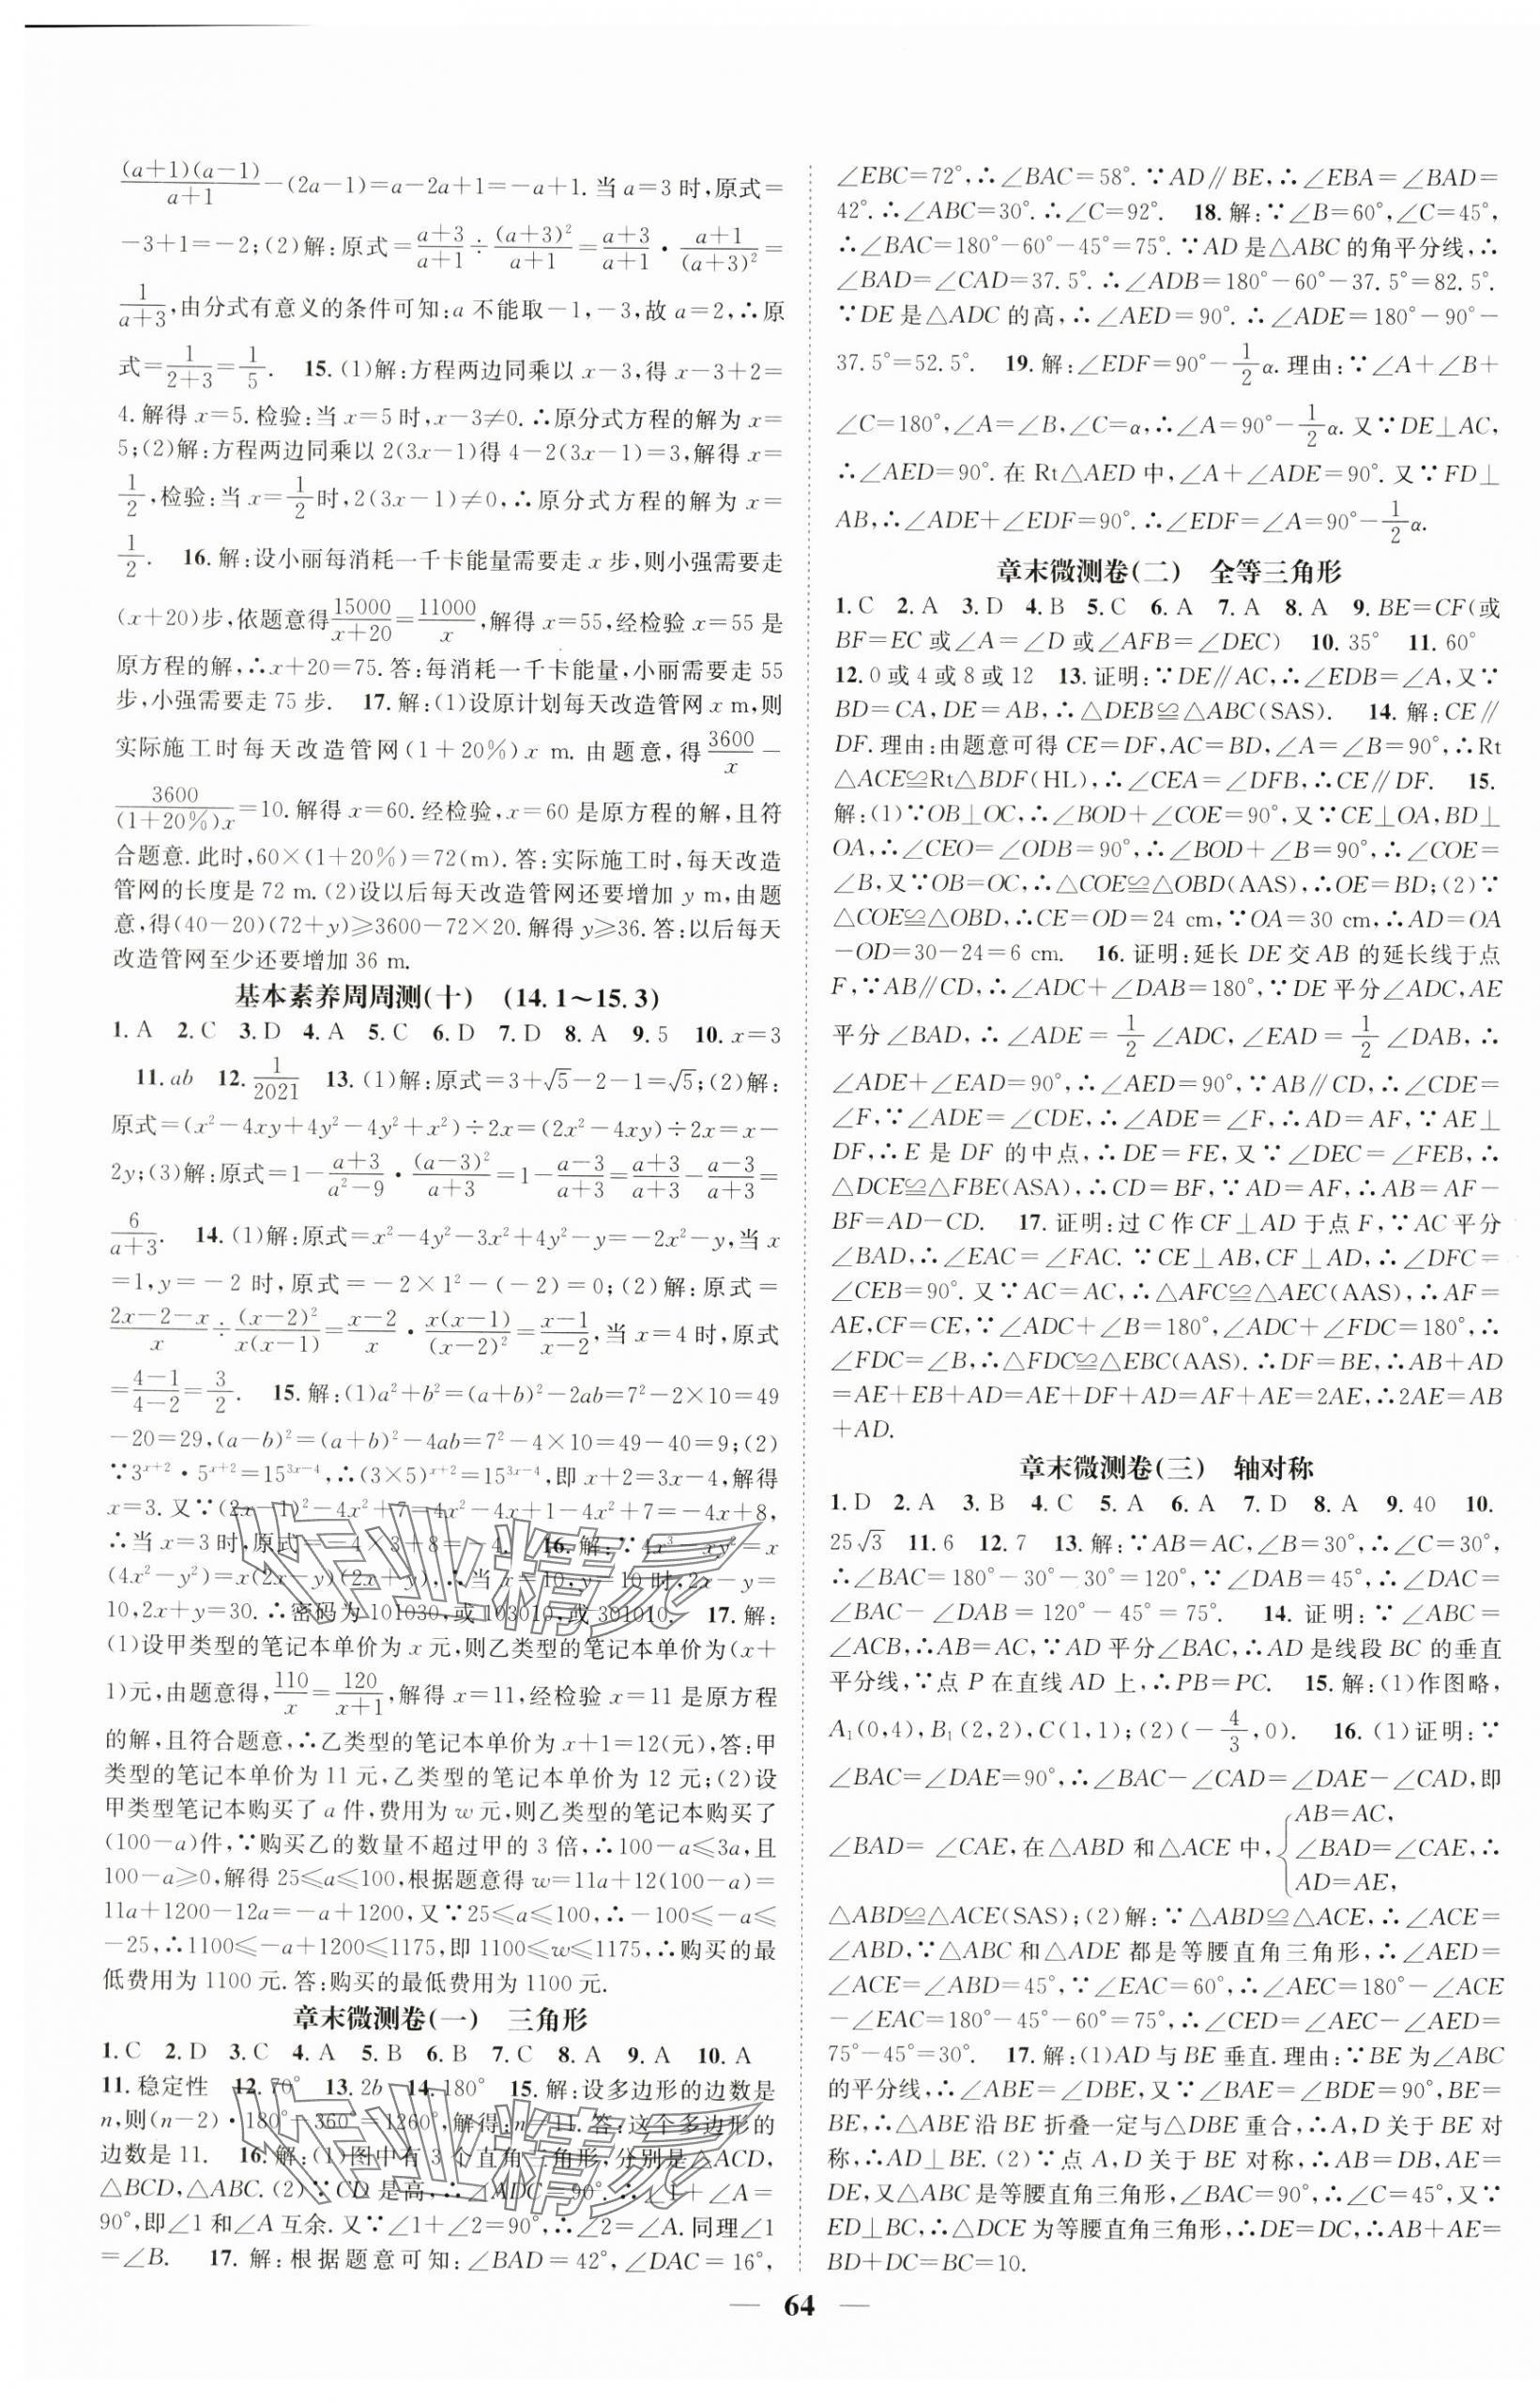 (a+1)(a-1)/(a+1)-(2a-1)=a-2a+1=-a+1.当a=3时,原式=
-3+1=-2;(2)解:原式=(a+3)/(a+1)÷(a+3)²/(a+1)=(a+3)/(a+1)·(a+1)/(a+3)²=
1/(a+3),由分式有意义的条件可知:a不能取-1,-3,故a=2,∴原
式=1/(2+3)=1/5. 15.(1)解:方程两边同乘以x-3,得x-3+2=
4.解得x=5.检验:当x=5时,x-3≠0.∴原分式方程的解为x=
5;(2)解:方程两边同乘以2(3x-1)得4-2(3x-1)=3,解得x=
1/2,检验:当x=1/2时,2(3x-1)≠0,∴原分式方程的解为x=
1/2. 16.解:设小丽每消耗一千卡能量需要走x步,则小强需要走
(x+20)步,依题意得15000/(x+20)=11000/x,解得x=55,经检验x=55是
原方程的解,∴x+20=75.答:每消耗一千卡能量,小丽需要走55
步,小强需要走75步. 17.解:(1)设原计划每天改造管网x m,则
实际施工时每天改造管网(1+20%)x m.由题意,得3600/x-
3600/((1+20%)x)=10.解得x=60.经检验,x=60是原方程的解,且符
合题意.此时,60×(1+20%)=72(m).答:实际施工时,每天改造
管网的长度是72 m.(2)设以后每天改造管网还要增加y m,由题
意,得(40-20)(72+y)⩾3600-72×20.解得y⩾36.答:以后每天
改造管网至少还要增加36 m.
基本素养周周测(十) (14.1~15.3)
1.A 2.C 3.D 4.A 5.C 6.D 7.D 8.A 9.5 10.x=3
11.ab 12.1/2021 13.(1)解:原式=3+√5-2-1=√5;(2)解:
原式=(x²-4xy+4y²-4y²+x²)÷2x=(2x²-4xy)÷2x=x-
2y;(3)解:原式=1-(a+3)/(a²-9)·(a-3)²/(a+3)=1-(a-3)/(a+3)=(a+3)/(a+3)-(a-3)/(a+3)=
6/(a+3). 14.(1)解:原式=x²-4y²-3x²+4y²-y=-2x²-y,当x
=1,y=-2时,原式=-2×1²-(-2)=0;(2)解:原式=
(2x-2-x)/x÷(x-2)²/(x(x-1))=(x-2)/x·x(x-1)/(x-2)²=(x-1)/(x-2),当x=4时,原式
=(4-1)/(4-2)=3/2. 15.解:(1)a²+b²=(a+b)²-2ab=7²-2×10=49
-20=29,(a-b)²=(a+b)²-4ab=7²-4×10=49-40=9;(2)
∵3ˣ⁺²·5ˣ⁺²=15³ˣ⁻⁴,∴(3×5)ˣ⁺²=15³ˣ⁻⁴,即x+2=3x-4,解得
x=3.又∵(2x-1)²-4x²+7=4x²-4x+1-4x²+7=-4x+8,
∴当x=3时,原式=-4×3+8=-4. 16.解:∵4x³-xy²=x
(4x²-y²)=x(2x-y)(2x+y),∴当x=10,y=10时,2x-y=
10,2x+y=30.∴密码为101030,或103010,或301010. 17.解:
(1)设甲类型的笔记本单价为x元,则乙类型的笔记本单价为(x+
1)元,由题意得,110/x=120/(x+1),解得x=11,经检验x=11是原方程
的解,且符合题意,∴乙类型的笔记本单价为x+1=12(元),答:甲
类型的笔记本单价为11元,乙类型的笔记本单价为12元;(2)设
甲类型笔记本购买了a件,费用为w元,则乙类型的笔记本购买了
(100-a)件,∵购买乙的数量不超过甲的3倍,∴100-a⩽3a,且
100-a⩾0,解得25⩽a⩽100,根据题意得w=11a+12(100-a)=
11a+1200-12a=-a+1200,又∵25⩽a⩽100,∴-100⩽-a⩽
-25,∴1100⩽-a+1200⩽1175,即1100⩽w⩽1175,∴购买的最
低费用为1100元.答:购买的最低费用为1100元.
章末微测卷(一) 三角形
1.C 2.D 3.C 4.A 5.B 6.B 7.C 8.A 9.A 10.A
11.稳定性 12.70° 13.2b 14.180° 15.解:设多边形的边数是
n,则(n-2)·180°-360°=1260°,解得:n=11.答:这个多边形的
边数是11. 16.解:(1)图中有3个直角三角形,分别是△ACD,
△BCD,△ABC.(2)∵CD是高,∴∠ADC=90°.∴∠1+∠A=
90°,即∠1和∠A互余.又∵∠1+∠2=90°,∴∠2=∠A.同理∠1
=∠B. 17.解:根据题意可知:∠BAD=42°,∠DAC=16°,
∠EBC=72°,∴∠BAC=58°.∵AD∥BE,∴∠EBA=∠BAD=
42°.∴∠ABC=30°.∴∠C=92°. 18.解:∵∠B=60°,∠C=45°,
∴∠BAC=180°-60°-45°=75°.∵AD是△ABC的角平分线,∴
∠BAD=∠CAD=37.5°.∴∠ADB=180°-60°-37.5°=82.5°.
∵DE是△ADC的高,∴∠AED=90°.∴∠ADE=180°-90°-
37.5°=52.5°. 19.解:∠EDF=90°-1/2α.理由:∵∠A+∠B+
∠C=180°,∠A=∠B,∠C=α,∴∠A=90°-1/2α.又∵DE⊥AC,
∴∠AED=90°.在Rt△AED中,∠A+∠ADE=90°.又∵FD⊥
AB,∴∠ADE+∠EDF=90°.∴∠EDF=∠A=90°-1/2α.
章末微测卷(二) 全等三角形
1.C 2.A 3.D 4.B 5.C 6.A 7.A 8.A 9.BE=CF(或
BF=EC或∠A=∠D或∠AFB=∠DEC) 10.35° 11.60°
12.0或4或8或12 13.证明:∵DE∥AC,∴∠EDB=∠A,又∵
BD=CA,DE=AB,∴△DEB≌△ABC(SAS). 14.解:CE∥
DF.理由:由题意可得CE=DF,AC=BD,∠A=∠B=90°,∴Rt
△ACE≌Rt△BDF(HL),∴∠CEA=∠DFB,∴CE∥DF. 15.
解:(1)∵OB⊥OC,∴∠BOD+∠COE=90°,又∵CE⊥OA,BD⊥
OA,∴∠CEO=∠ODB=90°,∴∠BOD+∠B=90°,∴∠COE=
∠B,又∵OB=OC,∴△COE≌△OBD(AAS),∴OE=BD;(2)∵
△COE≌△OBD,∴CE=OD=24 cm,∵OA=30 cm,∴AD=OA
-OD=30-24=6 cm. 16.证明:延长DE交AB的延长线于点
F,∵AB∥CD,∴∠ADC+∠DAB=180°,∵DE平分∠ADC,AE
平分∠BAD,∴∠ADE=1/2∠ADC,∠EAD=1/2∠DAB,∴
∠ADE+∠EAD=90°,∴∠AED=90°,∵AB∥CD,∴∠CDE=
∠F,∵∠ADE=∠CDE,∴∠ADE=∠F,∴AD=AF,∵AE⊥
DF,∴E是DF的中点,∴DE=FE,又∵∠DEC=∠FEB,∴
△DCE≌△FBE(ASA),∴CD=BF,∵AD=AF,∴AB=AF-
BF=AD-CD. 17.证明:过C作CF⊥AD于点F,∵AC平分
∠BAD,∴∠EAC=∠FAC.∵CE⊥AB,CF⊥AD,∴∠DFC=
∠CEB=90°.又∵AC=AC,∴△AFC≌△AEC(AAS),∴AF=
AE,CF=CE,∵∠ADC+∠B=180°,∠ADC+∠FDC=180°,∴
∠FDC=∠B,∴△FDC≌△EBC(AAS).∴DF=BE,∴AB+AD
=AE+EB+AD=AE+DF+AD=AF+AE=2AE,∴2AE=AB
+AD.
章末微测卷(三) 轴对称
1.D 2.A 3.B 4.C 5.A 6.A 7.D 8.A 9.40 10.
25√3 11.6 12.7 13.解:∵AB=AC,∠B=30°,∴∠C=30°,
∴∠BAC=180°-30°-30°=120°,∵∠DAB=45°,∴∠DAC=
∠BAC-∠DAB=120°-45°=75°. 14.证明:∵∠ABC=
∠ACB,∴AB=AC,∵AD平分∠BAC,∴AD是线段BC的垂直
平分线,∵点P在直线AD上,∴PB=PC. 15.解:(1)作图略,
A₁(0,4),B₁(2,2),C(1,1);(2)(-4/3,0). 16.(1)证明:∵
∠BAC=∠DAE=90°,∴∠BAC-∠CAD=∠DAE-∠CAD,即
AB=AC,
∠BAD=∠CAE,在△ABD和△ACE中,{∠BAD=∠CAE,∴
AD=AE,
△ABD≌△ACE(SAS);(2)解:∵△ABD≌△ACE,∴∠ACE=
∠ABD,∵△ABC和△ADE都是等腰直角三角形,∴∠AED=
∠ACE=∠ABD=45°,∵∠EAC=60°,∴∠AEC=180°-∠ACE
-∠EAC=180°-45°-60°=75°,∴∠CED=∠AEC-∠AED=
75°-45°=30°. 17.解:(1)AD与BE垂直.理由:∵BE为∠ABC
的平分线,∴∠ABE=∠DBE,又∵∠BAE=∠BDE=90°,BE=
BE,∴△ABE沿BE折叠一定与△DBE重合,∴A,D关于BE对
称,∴AD⊥BE.(2)∵点A,D关于BE对称,∴AB=DB,AE=
DE,又△ABC是等腰直角三角形,∠BAC=90°,∴∠C=45°,又∵
ED⊥BC,∴△DCE为等腰直角三角形,∴DE=DC,∴AB+AE=
BD+DC=BC=10.
— 64 —
作业精灵
作业精灵